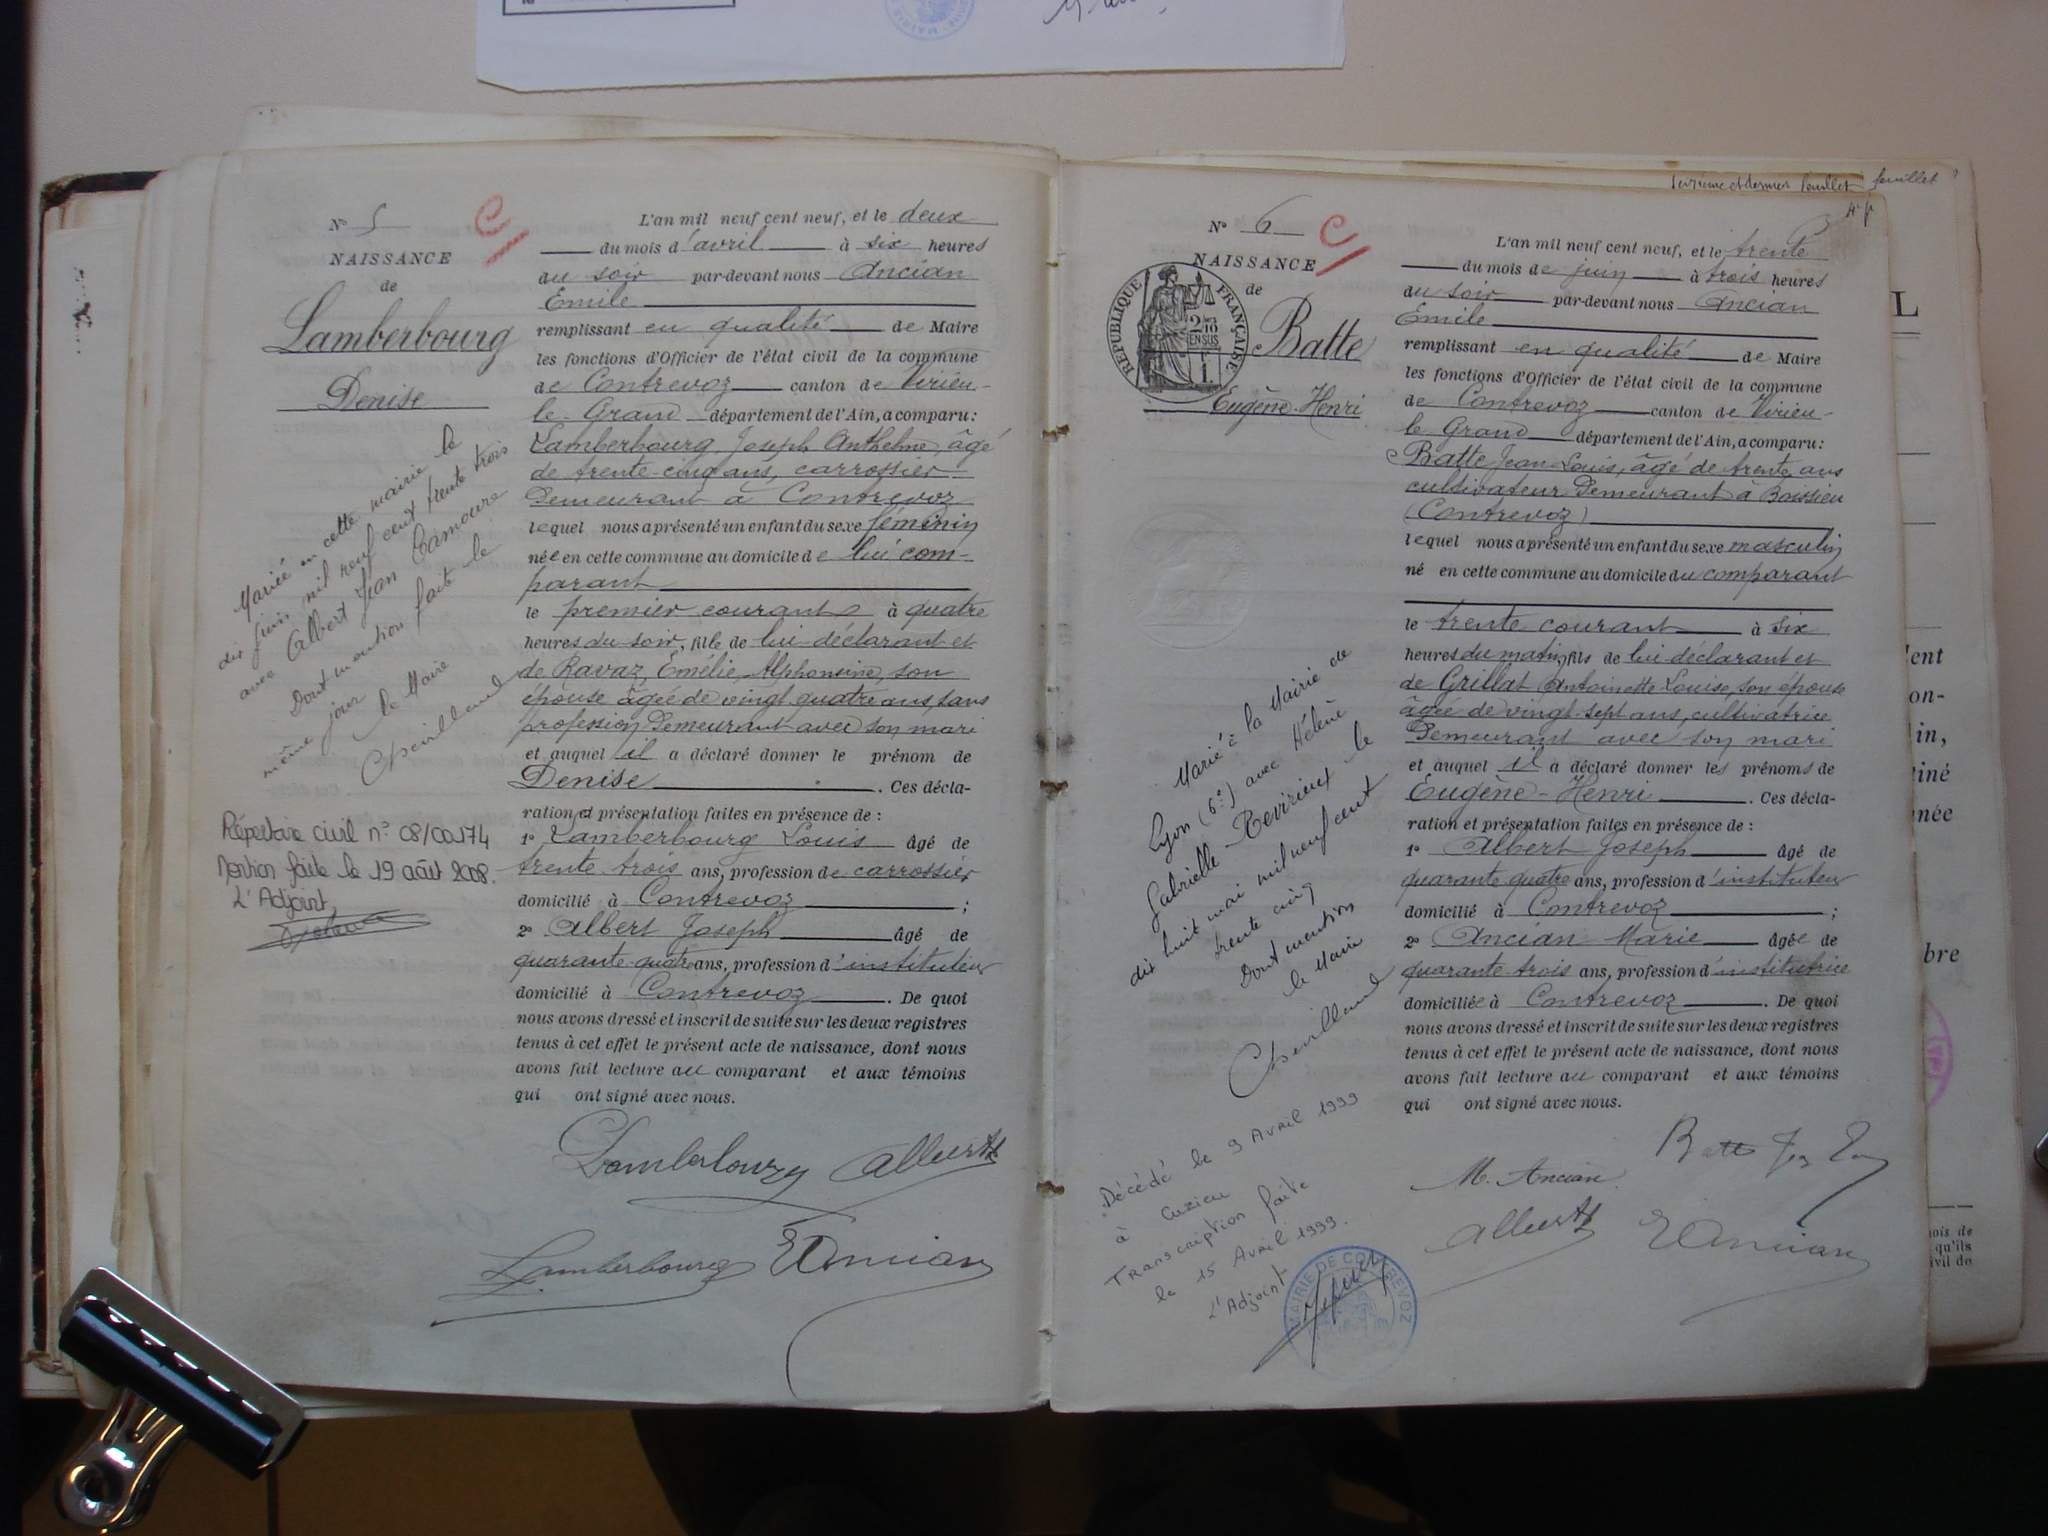 N°
Seizième et dernier feuillet feuillet
N° 5
NAISSANCE
de
Lamberbourg
Denise
C
L'an mil neuf cent neuf, et le deux
du mois d'avril à six heures
au soir par-devant nous Ancian
Emile
remplissant en qualité de Maire
les fonctions d'Officier de l'état civil de la commune
de Contrevoz canton de Virieu-
le-Grand département de l'Ain, a comparu:
Lamberbourg Joseph Anthelme, âgé
de trente-cinq ans, carrossier
Demeurant à Contrevoz
lequel nous a présenté un enfant du sexe féminin
née en cette commune au domicile de lui com-
parant
le premier courant à quatre
heures du soir, fille de lui déclarant et
de Ravaz, Emélie, Alphonsine, son
épouse âgée de vingt quatre ans, sans
profession Demeurant avec son mari
et auquel il a déclaré donner le prénom de
Denise. Ces décla-
ration et présentation faites en présence de :
1° Lamberbourg Louis âgé de
trente trois ans, profession de carrossier
domicilié à Contrevoz ;
2° Albert Joseph âgé de
quarante-quatre ans, profession d'instituteur
domicilié à Contrevoz. De quoi
nous avons dressé et inscrit de suite sur les deux registres
tenus à cet effet le présent acte de naissance, dont nous
avons fait lecture au comparant et aux témoins
qui ont signé avec nous.
Lamberbourg Albert
Lamberbourg EAncian
Mariée en cette mairie le
dix juin mil neuf cent trente trois
avec Albert Jean Camoure
Dont mention faite le
même jour
Le Maire
Répertoire civil n° 08/00174
Mention faite le 19 août 2008.
L'Adjoint,
N° 6
C
NAISSANCE
de
REPUBLIQUE FRANÇAISE
2/10
EN SUS
1 F
Batte
Eugène-Henri
L'an mil neuf cent neuf, et le trente
du mois de juin à trois heures
au soir par-devant nous Ancian
Emile
remplissant en qualité de Maire
les fonctions d'Officier de l'état civil de la commune
de Contrevoz canton de Virieu-
le Grand département de l'Ain, a comparu:
Batte Jean-Louis, âgé de trente ans
cultivateur Demeurant à Boissieu
(Contrevoz)
lequel nous a présenté un enfant du sexe masculin
né en cette commune au domicile du comparant
le trente courant à six
heures du matin, fils de lui déclarant et
de Grillat Antoinette Louise, son épouse
âgée de vingt-sept ans, cultivatrice
Demeurant avec son mari
et auquel il a déclaré donner les prénoms de
Eugène-Henri. Ces décla-
ration et présentation faites en présence de :
1° Albert Joseph âgé de
quarante quatre ans, profession d'instituteur
domicilié à Contrevoz ;
2° Ancian Marie âgée de
quarante-trois ans, profession d'institutrice
domiciliée à Contrevoz. De quoi
nous avons dressé et inscrit de suite sur les deux registres
tenus à cet effet le présent acte de naissance, dont nous
avons fait lecture au comparant et aux témoins
qui ont signé avec nous.
Batte
M. Ancian
Albert EAncian
Marié à la Mairie de
Lyon (6e) avec Hélène
Gabrielle Revirieux le
dix huit mai mil neuf cent
trente cinq
Dont mention
le Maire
Décédé le 9 Avril 1999
à Cuzieu
Transcription faite
le 15 Avril 1999.
L'Adjoint
MAIRIE DE CONTREVOZ
L